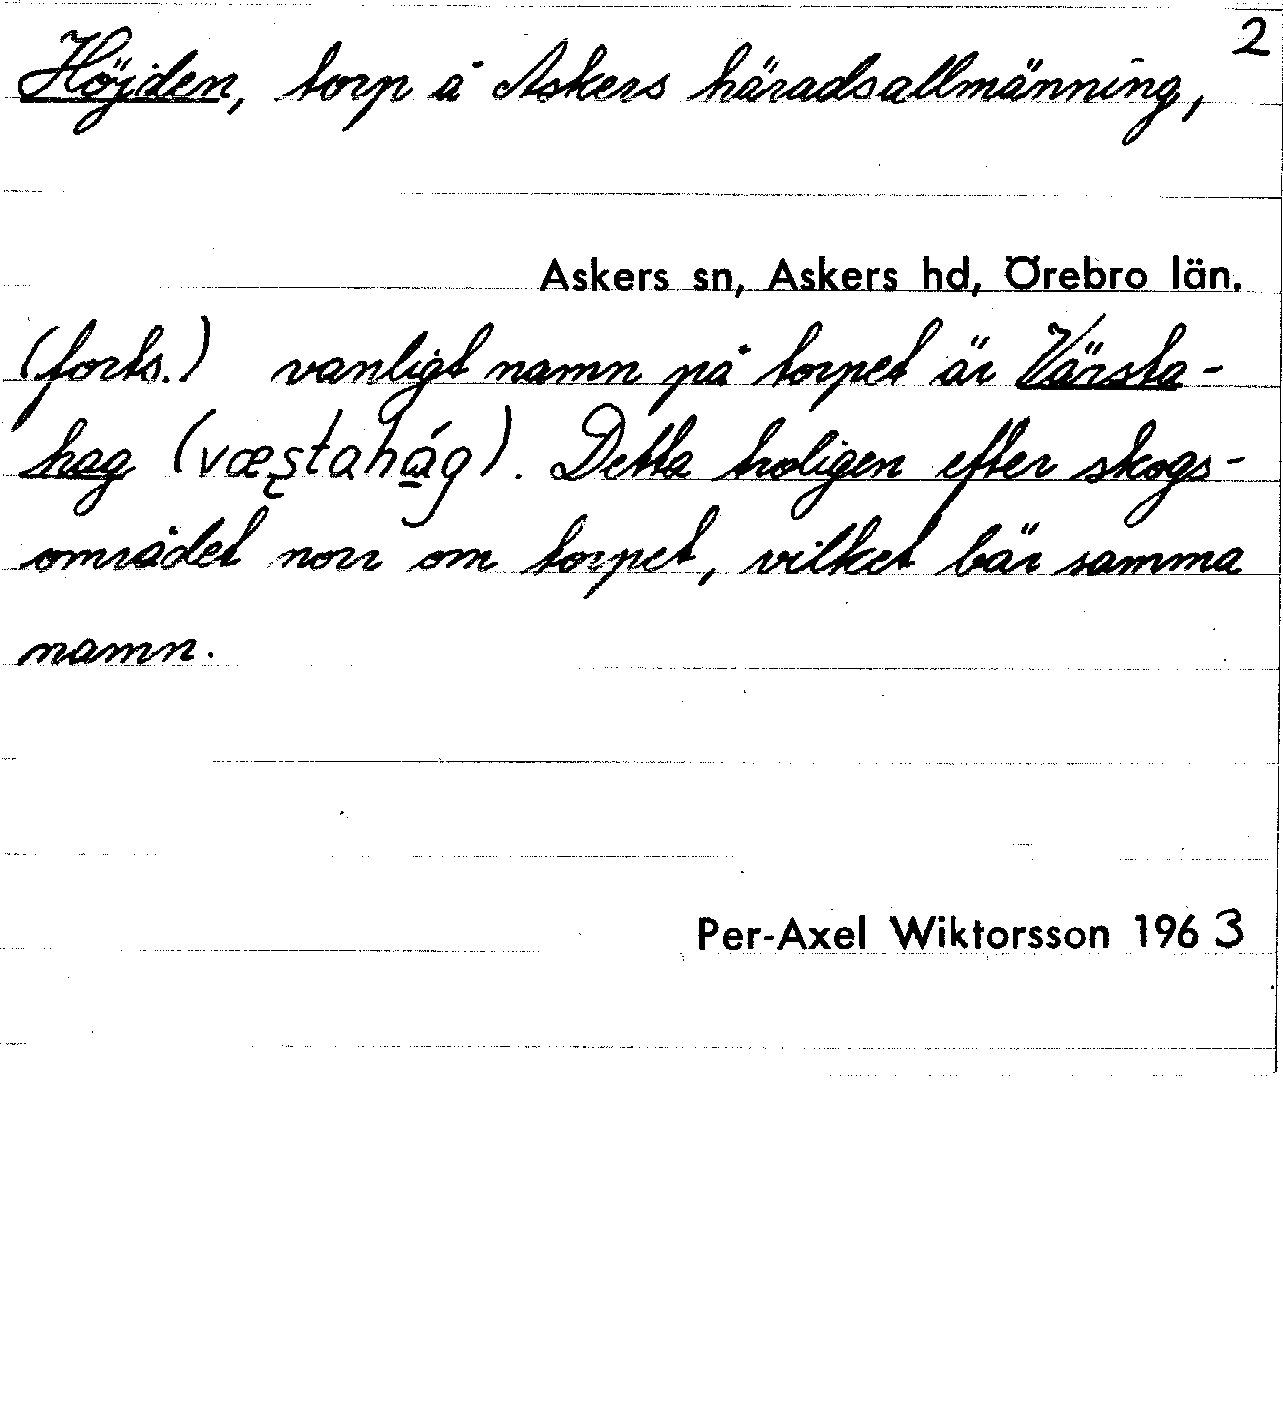 2
Höjden, torp å Askers häradsallmänning,
Askers sn, Askers hd, Örebro län.
(forts.) vanligt namn på torpet är Värsta-
hag (væʂtahág). Detta troligen efter skogs-
området norr om torpet, vilket bär samma
namn.
Per-Axel Wiktorsson 1963